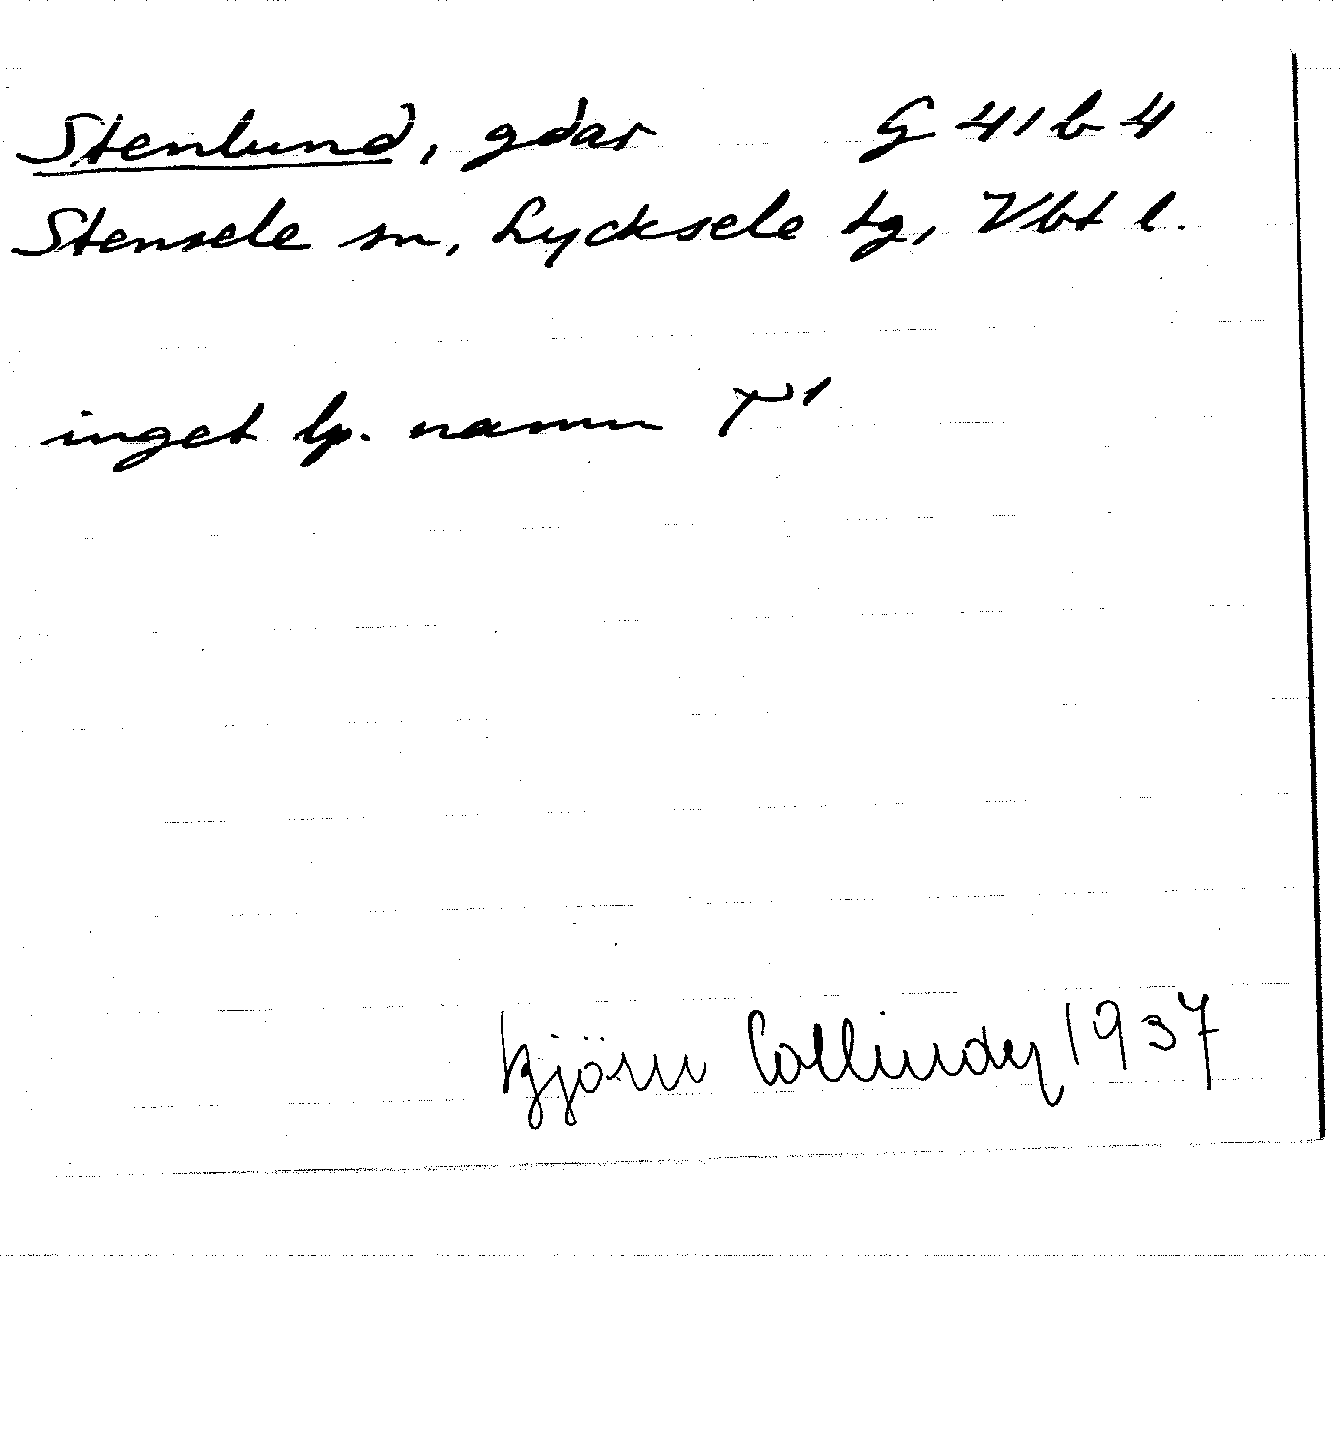 Stenlund, gdar G 41 b 4
Stensele sn, Lycksele tg, Vbt l.
inget lp. namn T¹
Björn Collinder 1937